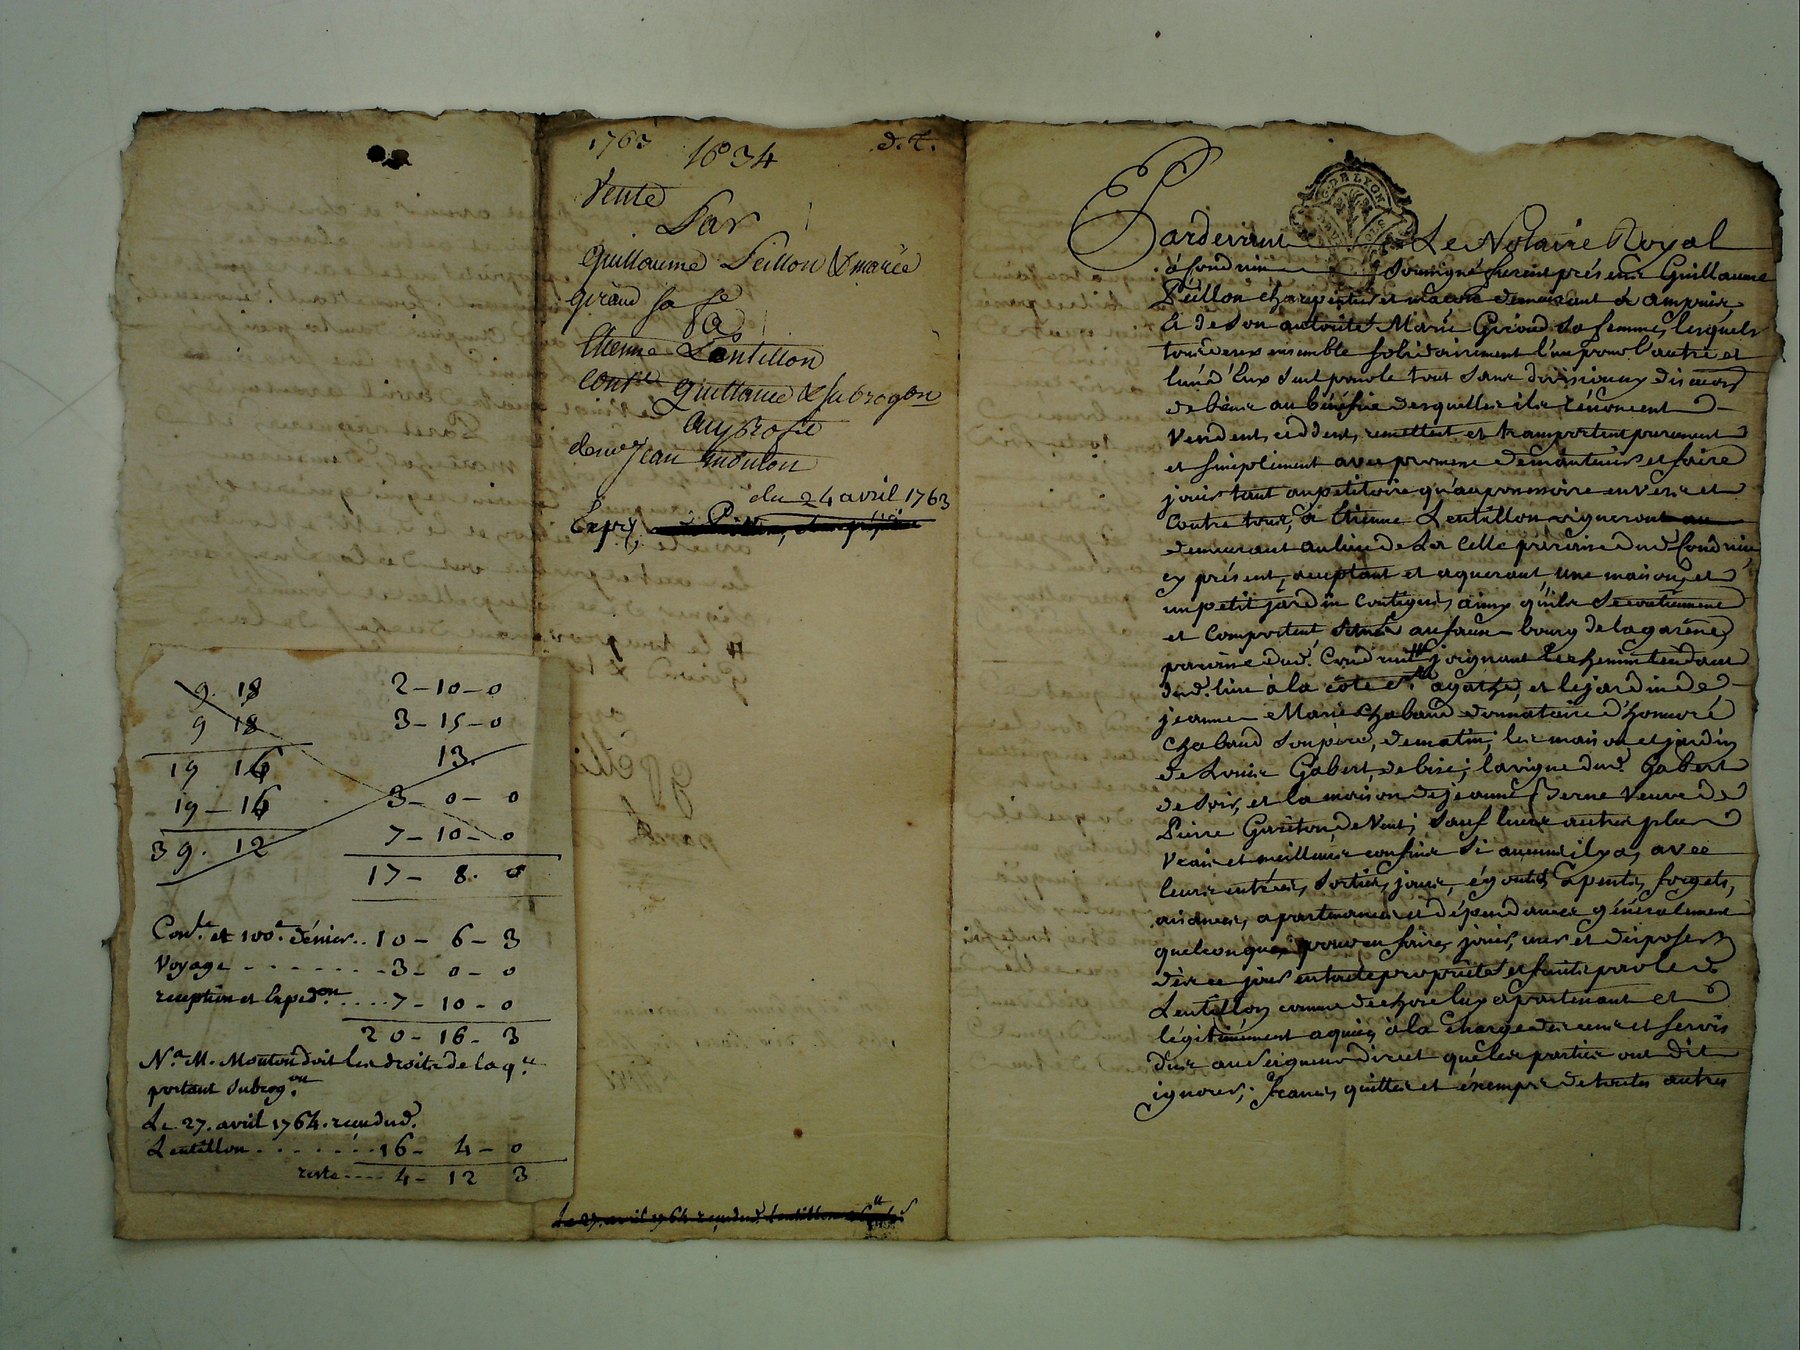 1763 1634 d. t.
Vente
Par
Guillaume Peillon & marie
giraud sa fe
a
Etienne Lentillon
contt quittance & subrogaon
au profit
de mr Jean mouton
du 24 avril 1763
Expé
Le 27. avril 1764 reçu dud. Lentillon
9. 18
9 18
19 16
19 - 16
39. 12
2 - 10 - 0
3 - 15 - 0
13.
3 - 0 - 0
7 - 10 - 0
17 - 8. 0
Conle et 100e denier.. 10 - 6 - 3
Voyage - - - - - - - 3 - 0 - 0
reception et Expedon .... 7 - 10 - 0
20 - 16 - 3
Na M. Mouton doit les droits de la qce
portant subrogon.
Le 27. avril 1764. reçu dud.
Lentillon - - - - - - - 16 - 4 - 0
reste ---- 4 - 12 3
G. DE LYON
Pardevant Le Notaire Royal
à Condrieu soussigné furent présens Guillaume
Peillon charpentier et maçon demeurant à ampuis,
& de son autorité Marie Giraud sa femme, lesquels
tous deux ensemble solidairement l'un pour l'autre et
l'un d'Eux seul pour le tout sans division ny discution
de biens au bénéfice desquelles ils rénoncent
Vendent, cèddent, remettent et transportent purement
et simplement avec promesse de maintenir et faire
jouir tant au petitoire qu'au possessoire envers et
contre tous, à Etienne Lentillon vigneron
demeurant au lieu de La Celle paroisse dud. Condrieu
cy présent, acceptant et aquerant, une maison, et
un petit jardin contigus, ainsy qu'ils se contiennent
et comportent situés au faux-bourg de la garenne,
paroisse dud. Condrieu joignant le chemin tendant
dud. lieu à la côte Ste agathe, et le jardin de
jeanne Marie Chaband donnataire d'honnoré
Chaband son père, de matin; les maison et jardin
de Louis Gabert de bise; la vigne dud. Gabert
de soir, et la maison de jeanne Berne Veuve de
Pierre Gariton, de Vent; sauf leurs autres plus
vrais et meilleurs confins si aucuns il y a, avec
leurs entrées, sorties, jours, égouts, apents, forgets,
aisances, apartenances et dépendances généralement
quelconques pour en faire, jouir, user et disposer
dès ce jour en toute propriété et fruits par led.
Lentillon comme de chose luy apartenant et
légitimement aquise, à la charge des cens et servis
dus au seigneur direct que les parties ont dit
ignorer; francs, quittes et éxempts de toutes autres